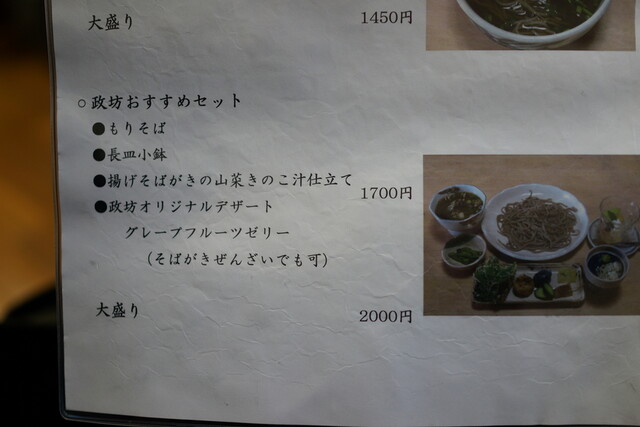 大盛り 1450円
○政坊おすすめセット
●もりそば
●長皿小鉢
●揚げそばがきの山菜きのこ汁仕立て 1700円
●政坊オリジナルデザート
グレープフルーツゼリー
(そばがきぜんざいでも可)
大盛り 2000円